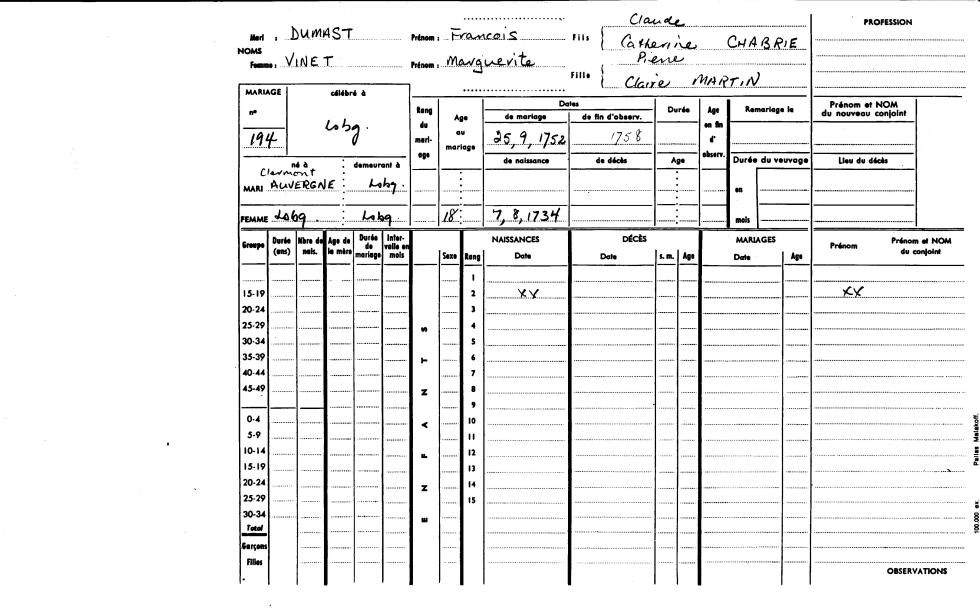 Claude
PROFESSION
Mari : DUMAST Prénom : Francois Fils Catherine CHABRIE
NOMS
Pierre
Femme : VINET Prénom : Marguerite
Fille Claire MARTIN
MARIAGE célébré à
n° 194 Lobg.
Rang du mari-age
Age au mariage
Dates
de mariage de fin d'observ.
25, 9, 1752 1758
Durée
Age en fin d' observ.
Remariage le
Prénom et NOM du nouveau conjoint
né à demeurant à
de naissance de décès Age Durée du veuvage Lieu du décès
Clermont
MARI AUVERGNE : Lobg.
en
FEMME Lobg. : Lobg. 18 : 7, 8, 1734
mois
Groupe Durée (ans) Nbre de nais. Age de la mère Durée de mariage Inter-valle en mois
ENFANTS
Sexe Rang
NAISSANCES Date
DÉCÈS Date s. m. Age
MARIAGES Date Age
Prénom Prénom et NOM du conjoint
1
15-19 2 XX XX
20-24 3
25-29 4
30-34 5
35-39 6
40-44 7
45-49 8
9
0-4 10
5-9 11
10-14 12
15-19 13
20-24 14
25-29 15
30-34
Total
Garçons
Filles
OBSERVATIONS
100.000 ex. Pailles Malakoff.